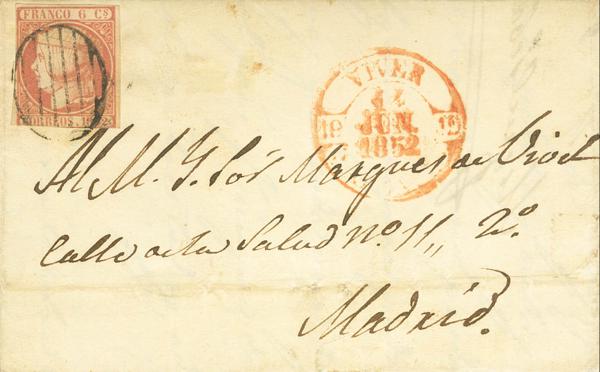 FRANCO 6 Cs
CORREOS. 1852
VIVER
JUN.
1852
19 19
Al M. Y. Sor Marques de
Calle de la Salud no. 11,, 2o.
Madrid.